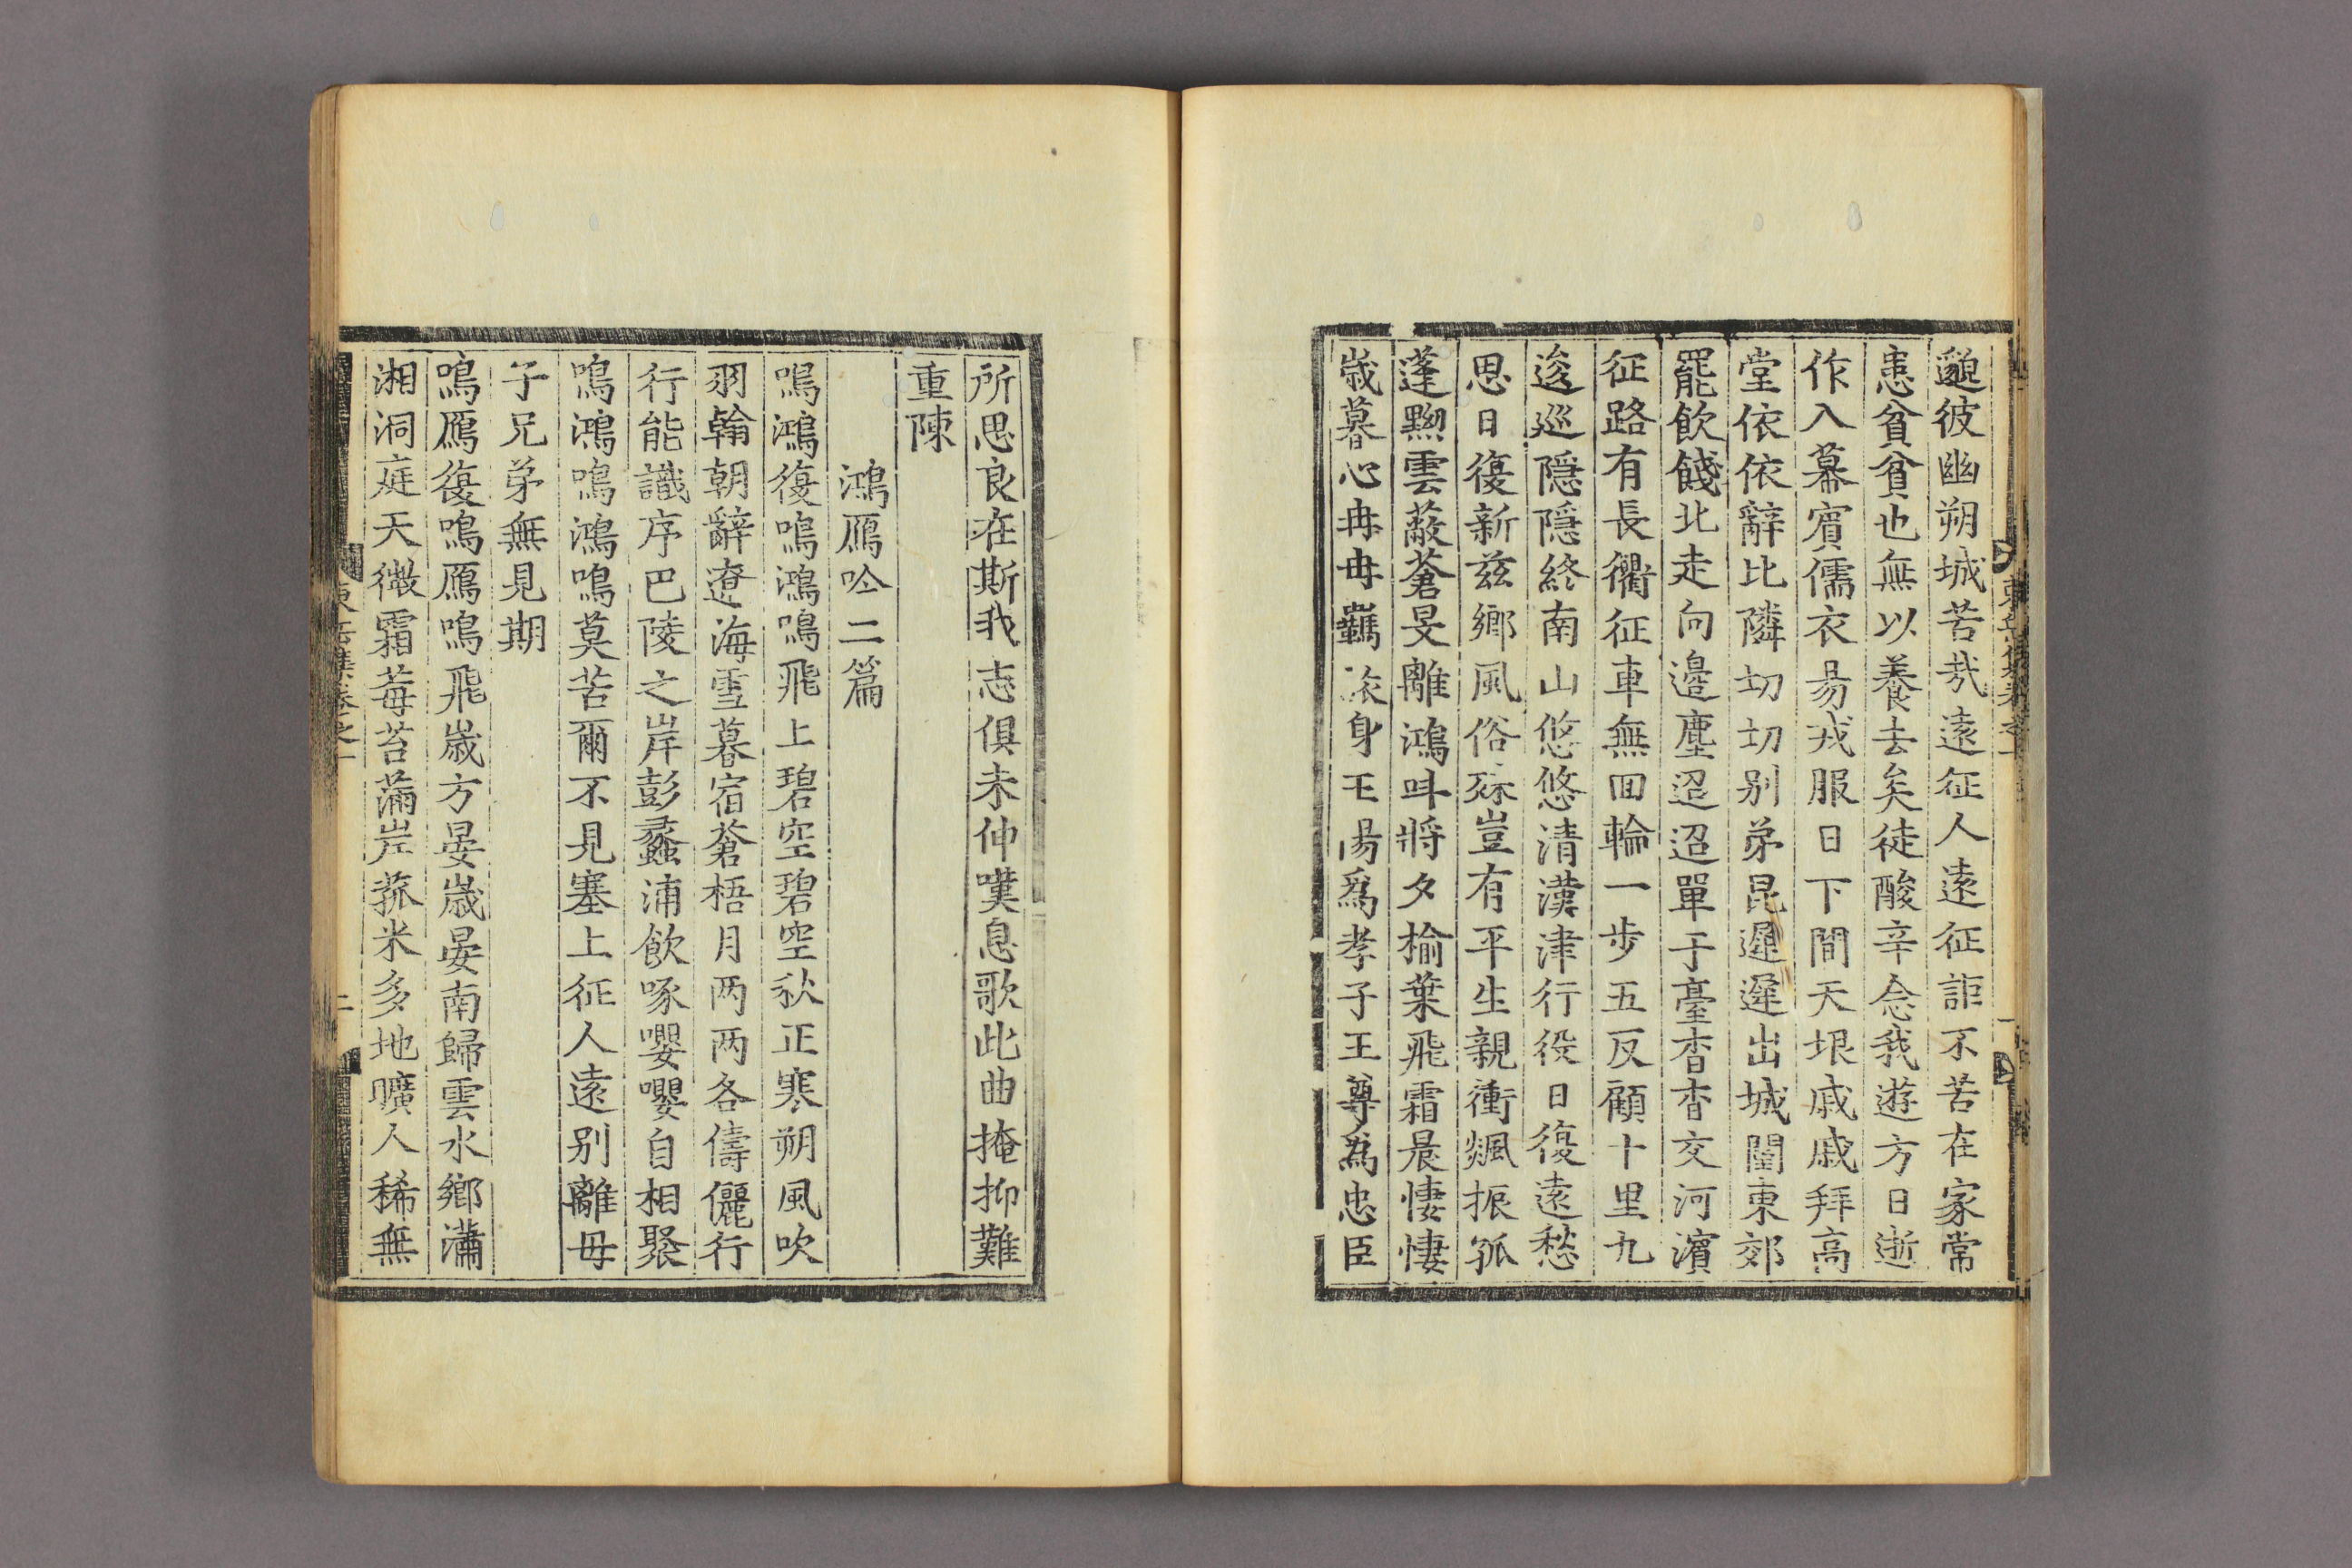 邈彼幽朔城苦哉遠征人遠征詎不苦在家常
患貧貧也無以養去矣徒酸辛念我遊方日逝
作入幕賓儒衣易戎服日下間天垠戚戚拜高
堂依依辭比隣切切别弟昆遲遲出城闉東郊
罷飲餞北走向邊塵迢迢單于臺杳杳交河濱
征路有長衢征車無回輪一步五反顧十里九
逡巡隱隱終南山悠悠清漢津行役日復遠愁
思日復新兹鄉風俗殊豈有平生親衝飆振孤
蓬黝雲蔽蒼旻離鴻叫將夕榆葉飛霜晨悽悽
歲暮心冉冉羈旅身王陽爲孝子王尊爲忠臣
所思良在斯我志俱未伸嘆息歌此曲掩抑難
重陳
鴻鴈吟二篇
鳴鴻復鳴鴻鳴飛上碧空碧空秋正寒朔風吹
羽翰朝辭遼海雪暮宿蒼梧月两两各儔儷行
行能識序巴陵之岸彭蠡浦飲啄嚶嚶自相聚
鳴鴻鳴鴻鳴莫苦爾不見塞上征人遠别離母
子兄弟無見期
鳴鴈復鳴鴈鳴飛歲方晏歲晏南歸雲水鄉瀟
湘洞庭天微霜莓苔滿岸菰米多地曠人稀無
東岳集卷之一
二